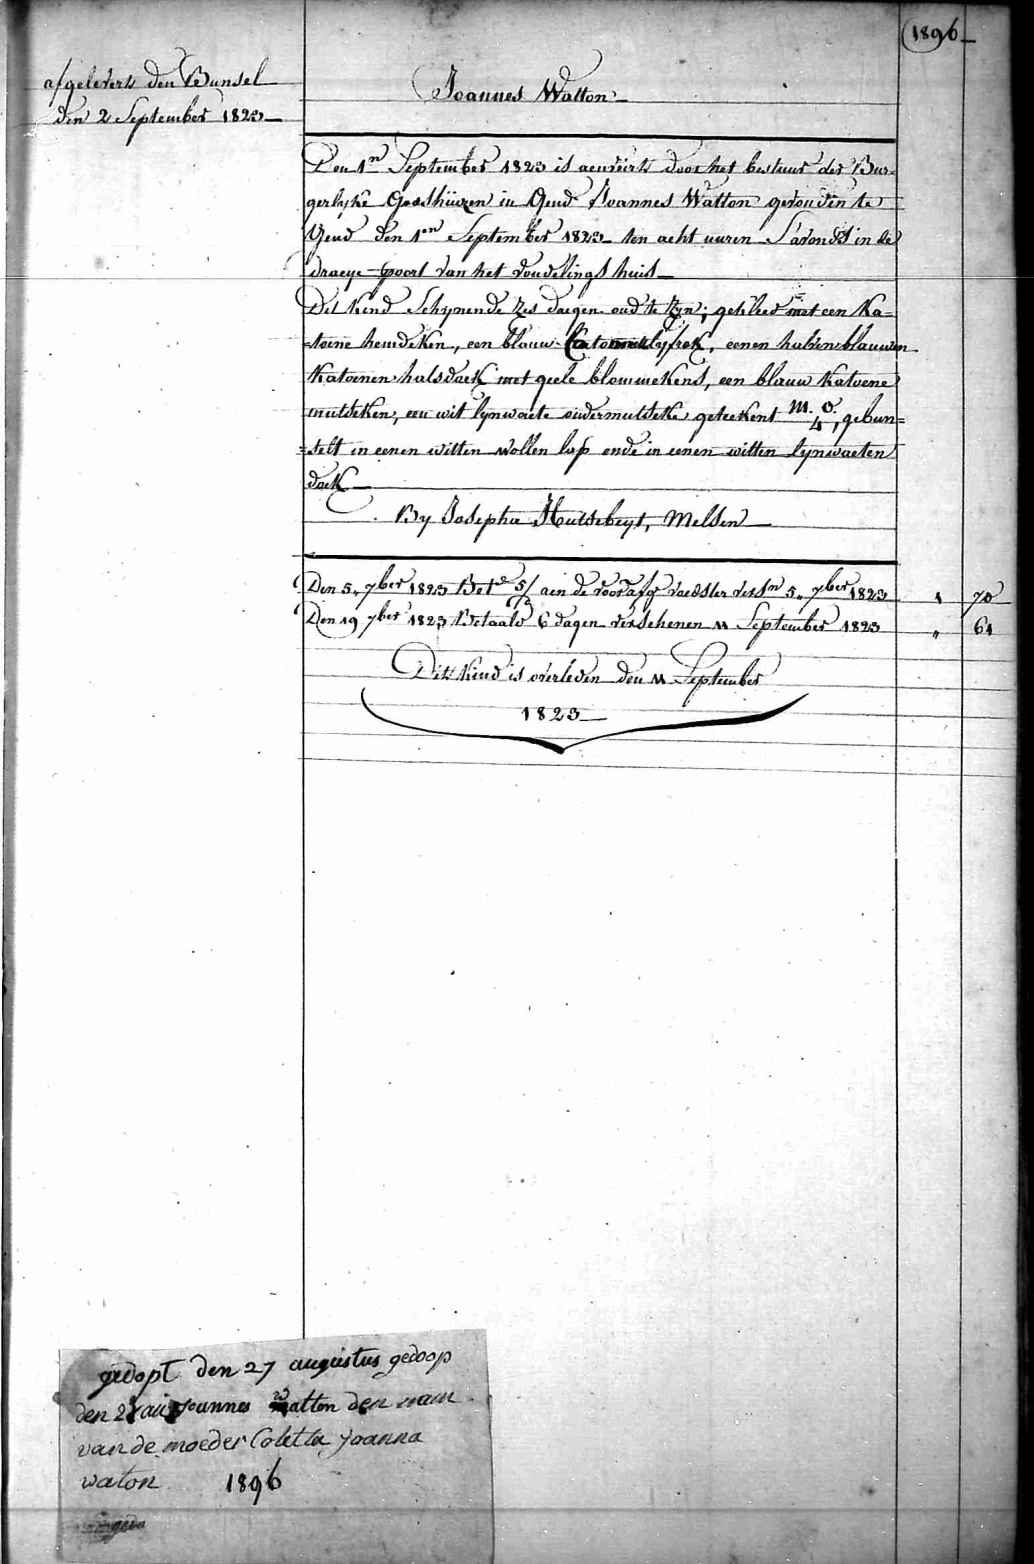 1896
afgelevert den Bunsel
den 2 September 1823
Joannes Watton
Den 1n September 1823 is aenveirt door het bestuur der Bur=
gerlyke Godshuizen in Gend Joannes Watton gevonden te
Gend den 1en September 1823 ten acht uuren S'avonds in de
draeye-poort van het vondelings huis
Dit kind Schynende zes daegen oud te Zyn; gekleed met een Ka=
=toene hemdeken, een blauw Katoene lyfrok, eenen halven blauwen
Katoenen halsdoek met geele blommekens, een blauw Katoene
mutseken, een wit lynwaete ondermutseke geteekent M. O. 4, gebun=
=selt in eenen witten wollen lap ende in eenen witten lynwaeten
doek
By Josepha Hutsebeyt, Melsen
Den 5. 7ber 1823 Bete 5/ aen de voorafg voedster versn 5. 7ber 1823 " 70
Den 19 7ber 1823 Betaald 6 dagen verschenen 11 September 1823 " 61
Dit kind is overleden den 11 September
1823
gedopt den 27 augustus gedoop
den 28 au Joannes watton den nam
van de moeder Coletta Joanna
waton 1896